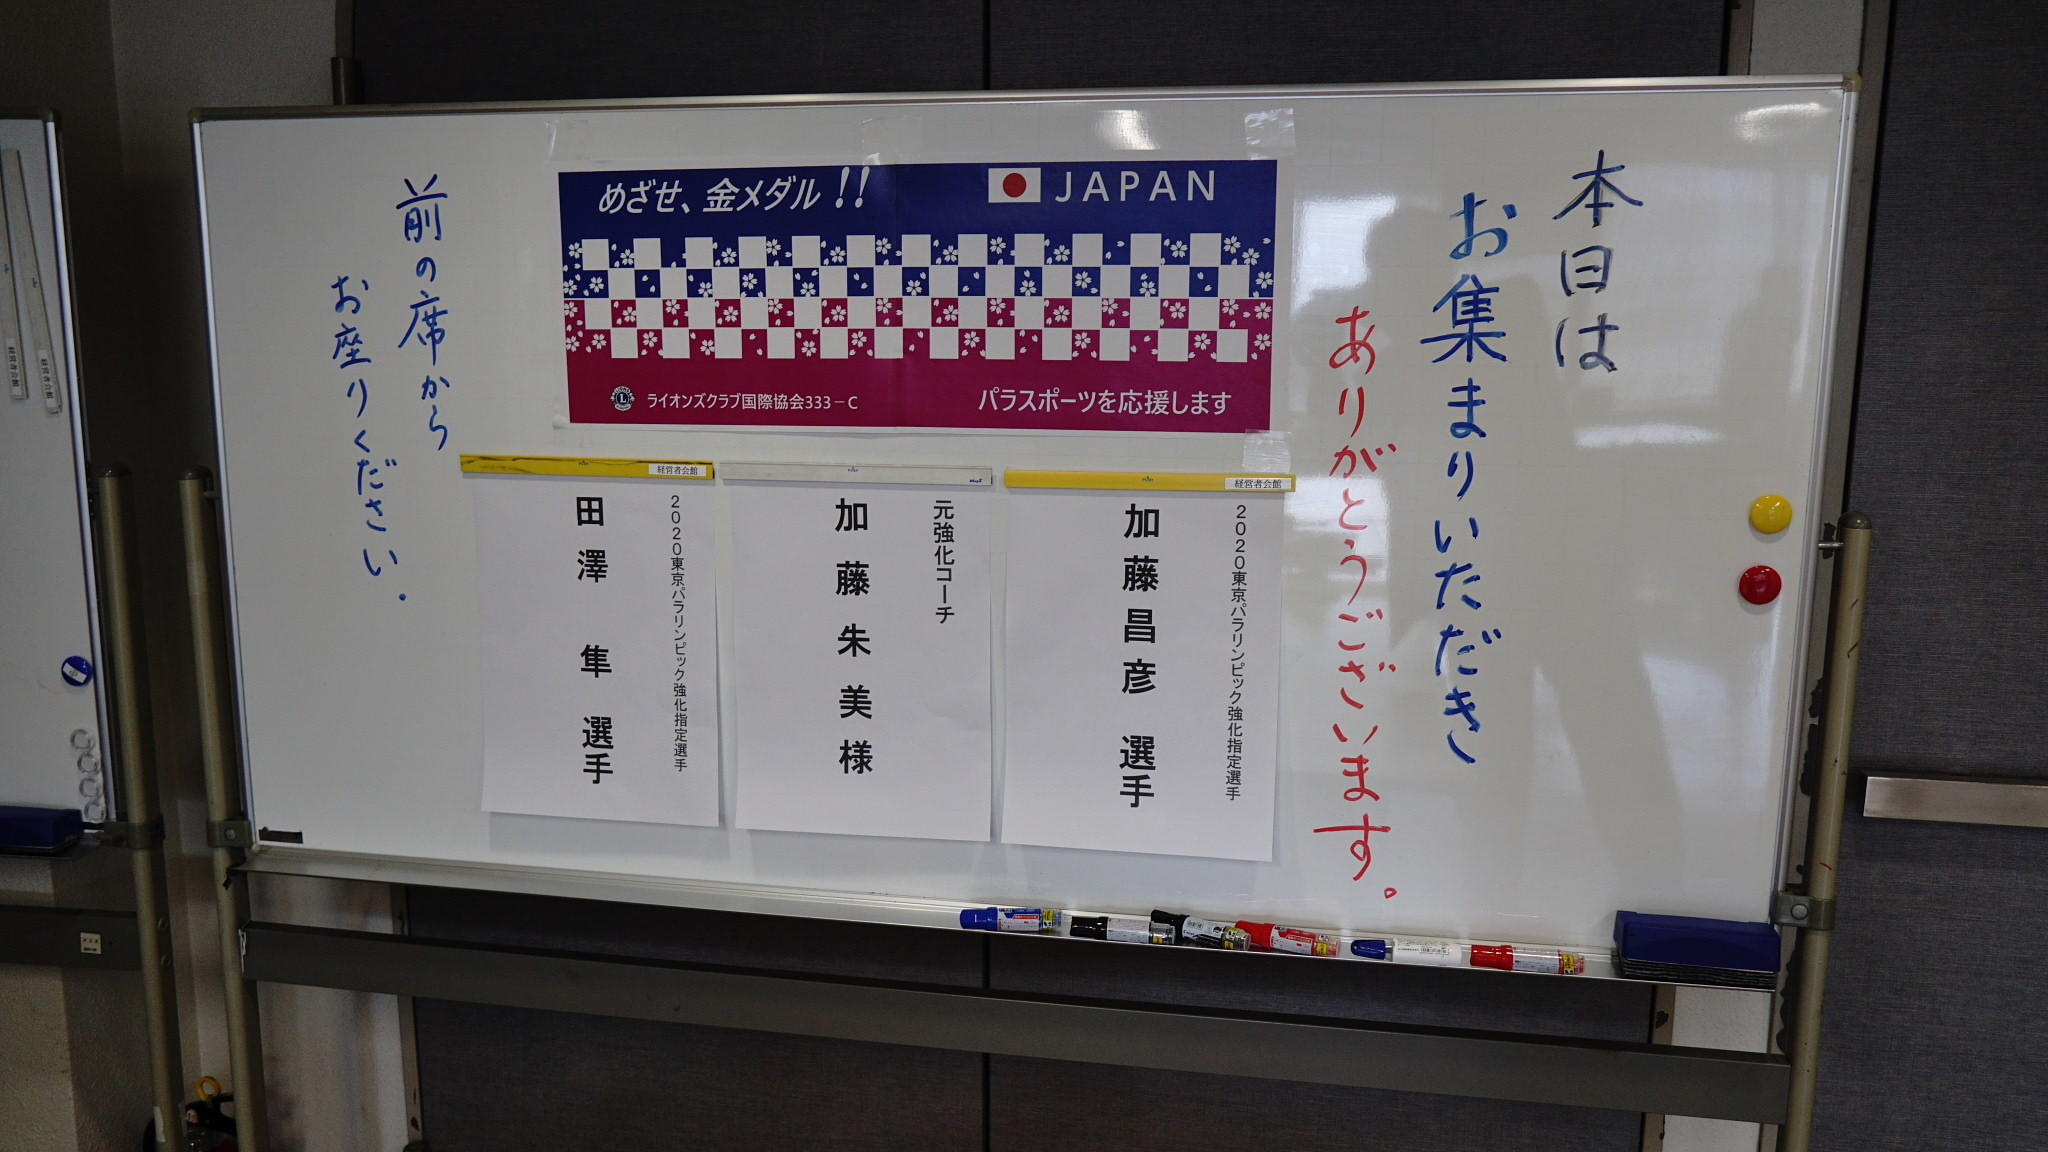 本日は
お集まりいただき
ありがとうございます。
めざせ、金メダル!!
JAPAN
ライオンズクラブ国際協会333-C
パラスポーツを応援します
経営者会館
2020東京パラリンピック強化指定選手
加藤昌彦 選手
元強化コーチ
加藤朱美様
経営者会館
2020東京パラリンピック強化指定選手
田澤 隼 選手
前の席から
お座りください.
経営者会館
経営者会館